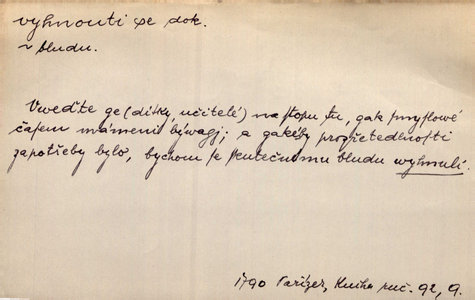 vyhnouti se dok.
~ bludu.
Uveďte ge (dítky, učitelé) na stopu tu, gak smyslowé
časem mámeni býwagj; a gakéby prozřetedlnosti
zapotřeby bylo, bychom se skutečnému bludu wyhnuli.
1790 Parizek, Kniha ruč. 92, 9.